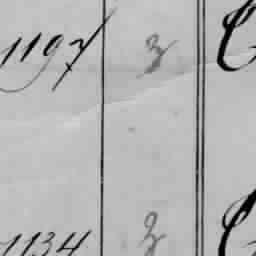 1197 3 C
1134 3 C